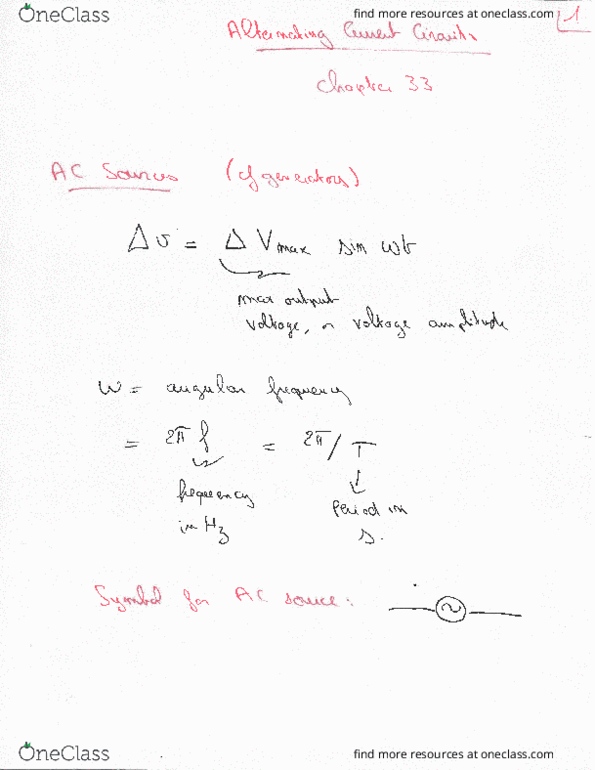 OneClass
find more resources at oneclass.com
1
Alternating Current Circuits
Chapter 33
AC Sources (cf generators)
Δv = ΔVmax sin ωt
max output
voltage, or voltage amplitude
ω = angular frequency
= 2πf = 2π/T
frequency
in Hz
Period in
s.
Symbol for AC source:
OneClass
find more resources at oneclass.com